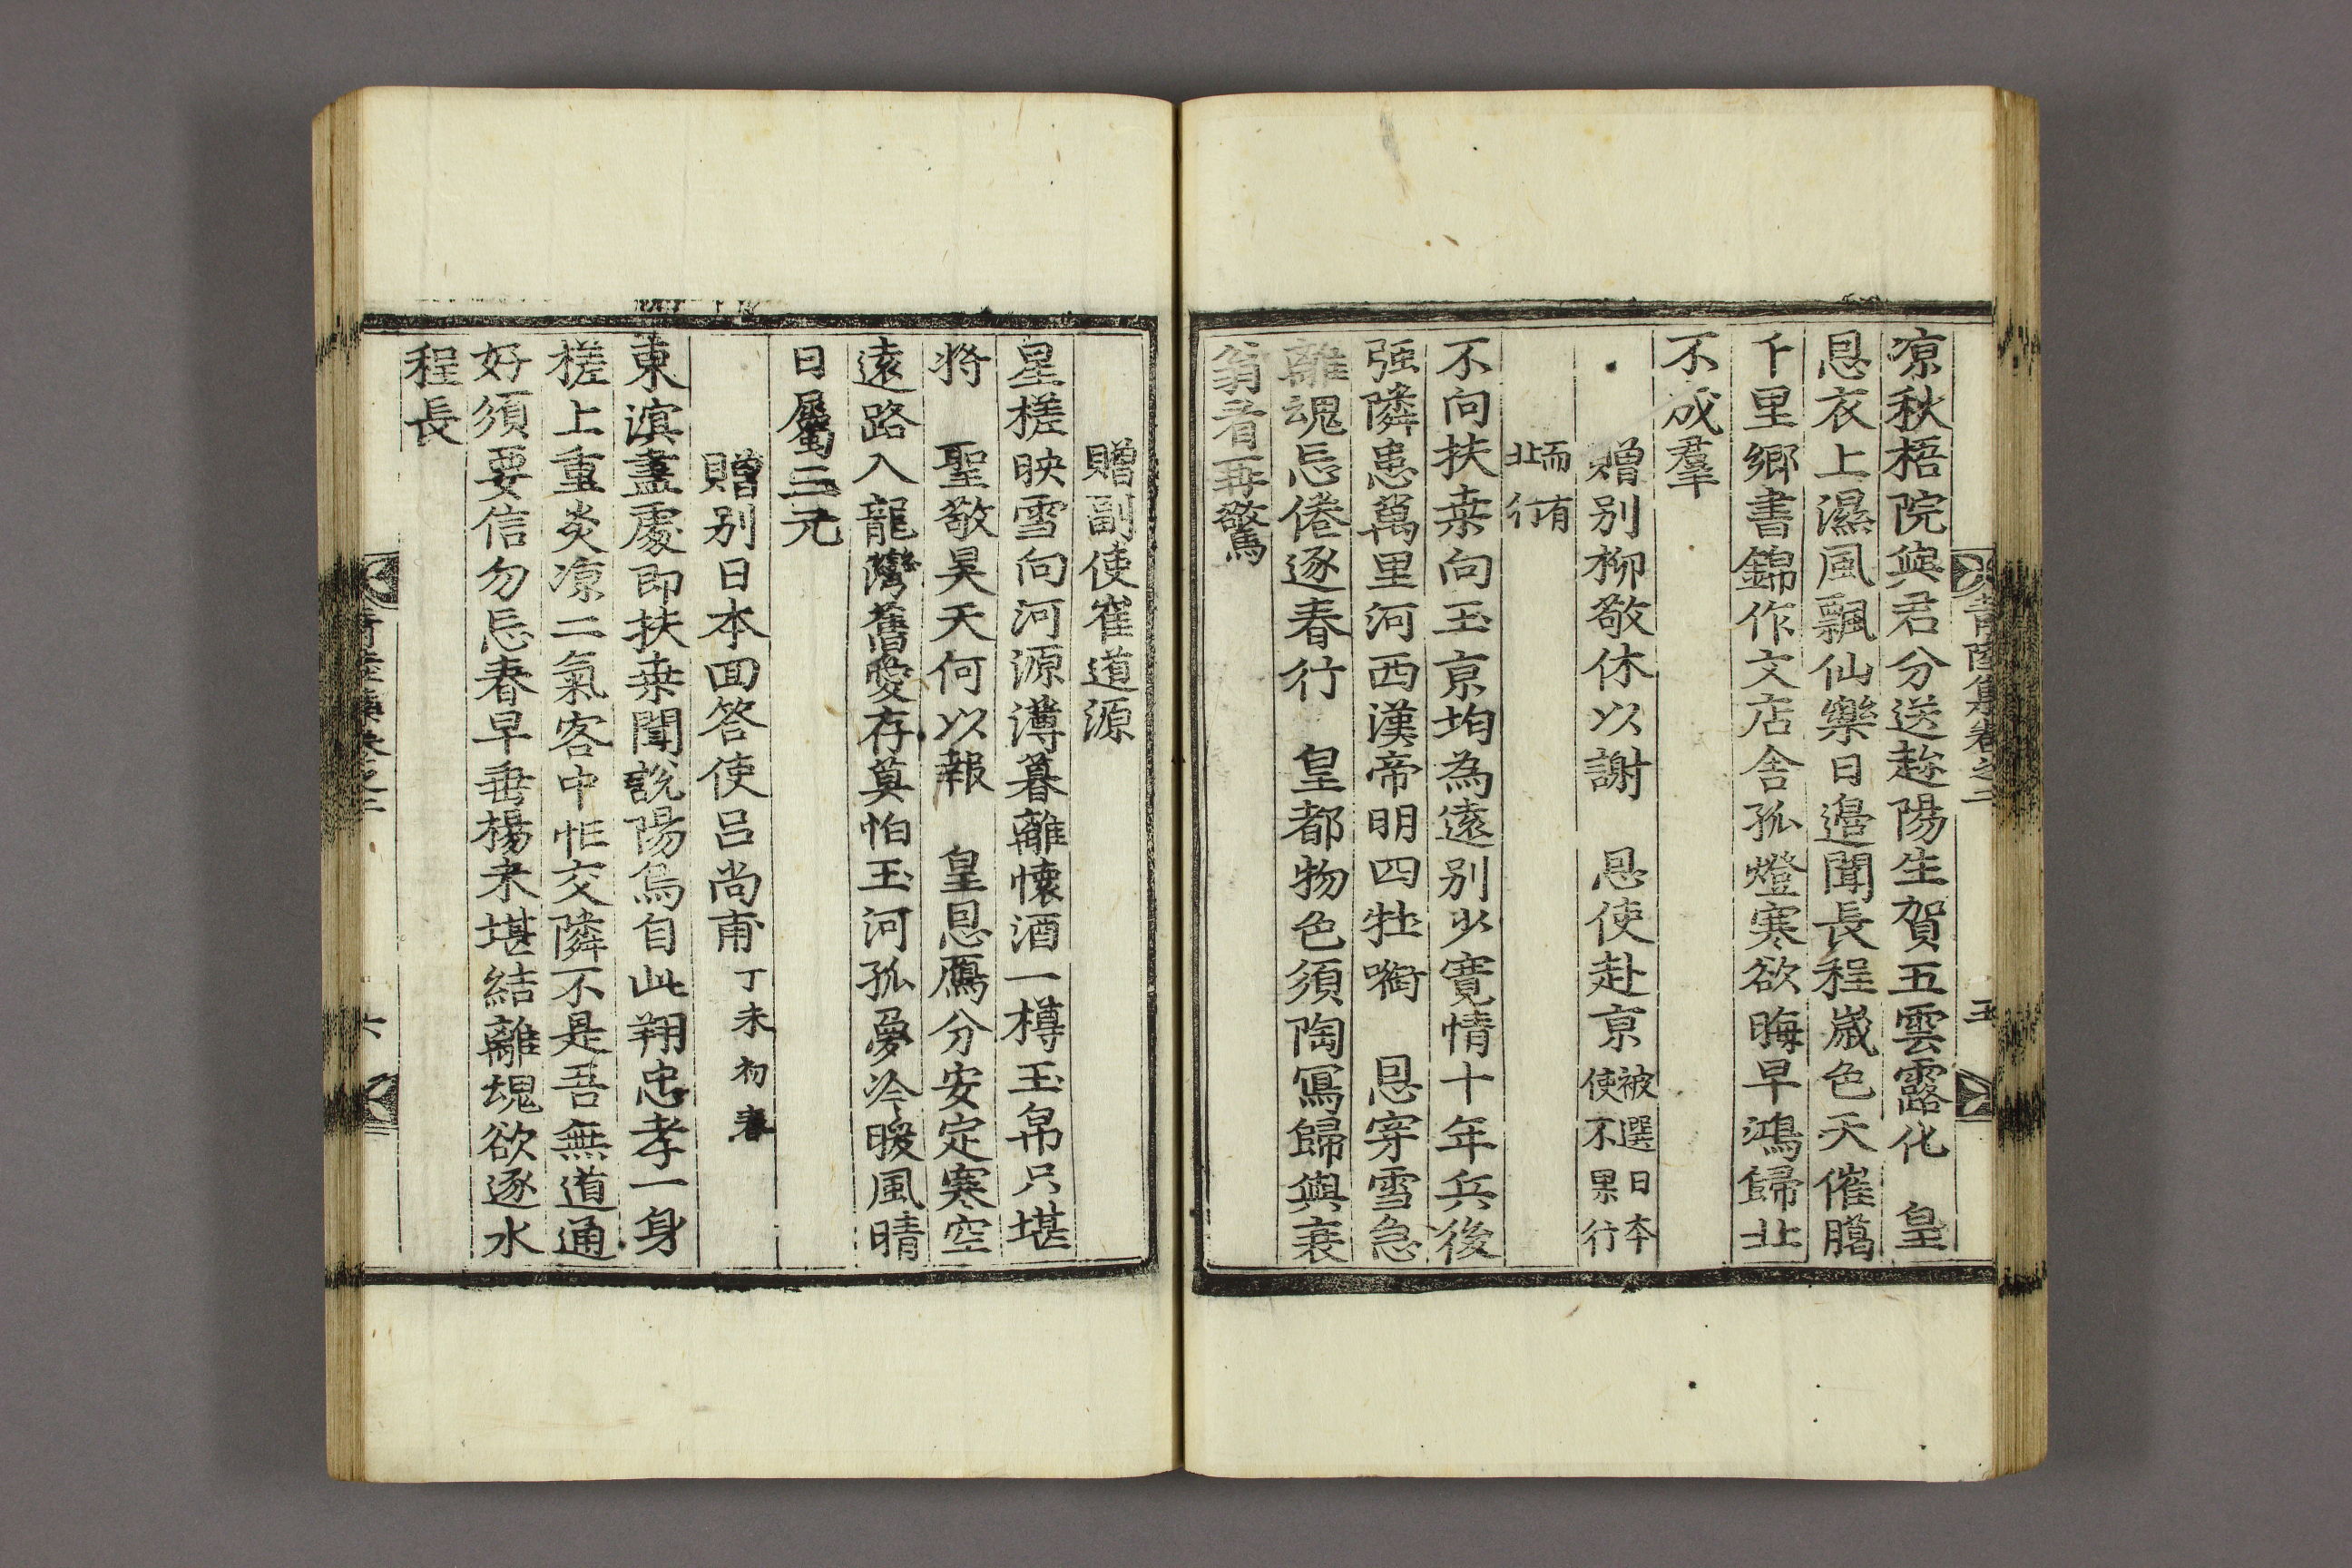 青陸集卷之二 五
凉秋梧院與君分送趂陽生賀五雲露化 皇
恩衣上濕風飄仙樂日邉聞長程歲色天催臈
千里鄉書錦作文店舍孤燈寒欲晦早鴻歸北
不成羣
贈别柳敬休以謝 恩使赴京被選日本使不果行
而有北行
不向扶桒向玉京均為遠别少寬情十年兵後
强隣患萬里河西漢帝明四牡啣 恩穿雪急
離魂忘倦逐春行 皇都物色須陶冩歸與衰
翁看再驚
贈副使崔道源
星槎映雪向河源薄暮離懷酒一樽玉帛只堪
將 聖敬昊天何以報 皇恩鴈分安定寒空
遠路入龍灣舊愛存莫怕玉河孤夢冷暖風晴
日屬三元
贈别日本回答使呂尚甫丁未初春
東溟盡處即扶桒聞說陽烏自此翔忠孝一身
槎上重炎凉二氣客中忙交隣不是吾無道通
好須要信勿忘春早垂楊未堪結離魂欲逐水
程長
六